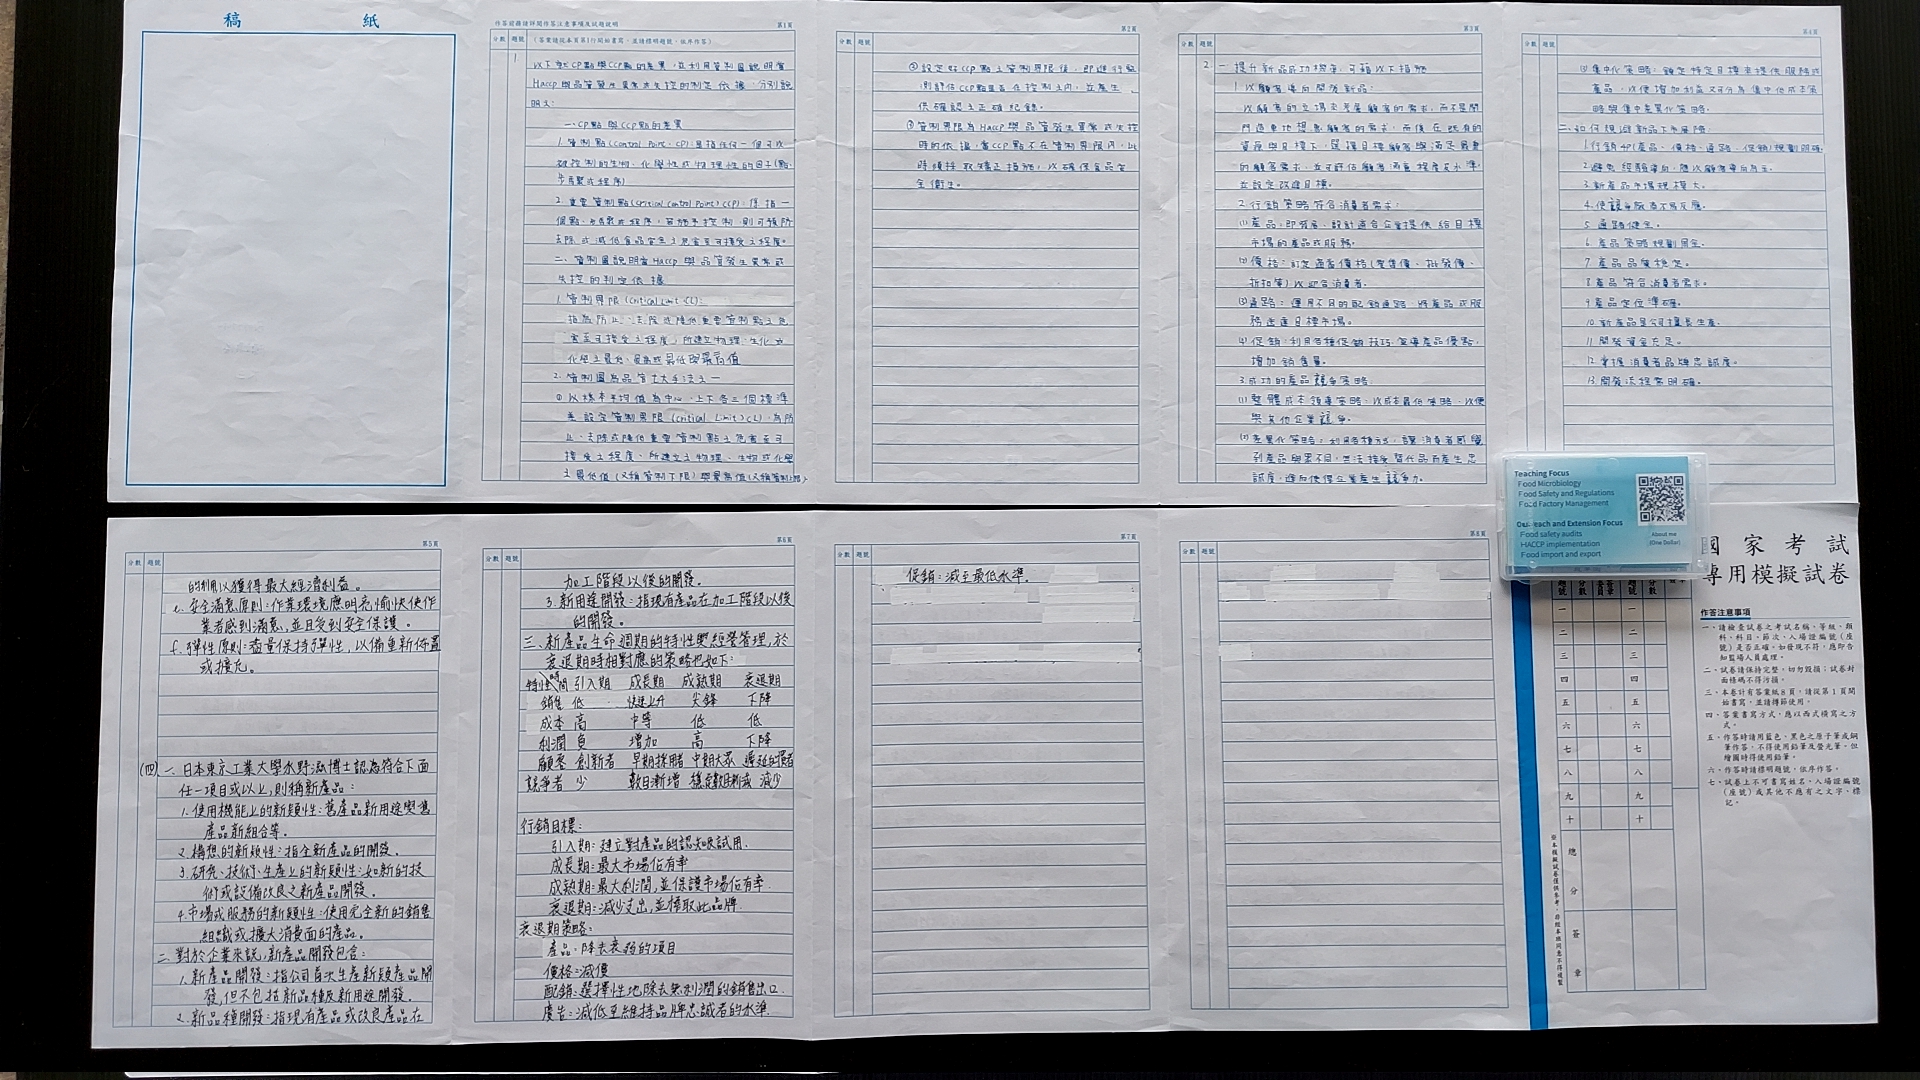 稿 紙
作答前應請詳閱作答注意事項及試題說明 第1頁
分數 題號 (答案請從本頁第1行開始書寫,並請標明題號,依序作答)
1
以下就CP點與CCP點的差異,並利用管制圖說明當
Haccp與品管發生異常或失控的判定依據,分別說
明之:
一、CP點與CCP點的差異
1.管制點(Control Point,CP):是指任何一個可以
被控制的生物、化學性或物理性的因子(點、
步驟或程序)
2.重要管制點(Critical Control Point)CCP):係指一
個點、步驟或程序,若施予控制,則可預防、
去除或減低食品安全之危害至可接受之程度。
二、管制圖說明當Haccp與品管發生異常或
失控的判定依據
1.管制界限(Critical Limit,CL):
指為防止、去除或降低重要管制點之危
害至可接受之程度,所建立物理、生化或
化學之最低、最高或最低與最高值
2.管制圖為品管七大手法之一
①以樣本平均值為中心,上下各三個標準
差設定管制界限(Critical Limit)CL),為防
止、去除或降低重要管制點之危害至可
接受之程度,所建立之物理、生物或化學
之最低值(又稱管制下限)與最高值(又稱管制上限)
第2頁
分數 題號
②設定好CCP點之管制界限後,即進行監
測評估CCP點是否在控制之內,並產生
供確認之正確紀錄。
③管制界限為Haccp與品管發生異常或失控
時的依據,當CCP點不在管制界限內,此
時須採取矯正措施,以確保食品安
全衛生。
第3頁
分數 題號
2 一、提升新品成功機率,可藉以下措施
1.以顧客導向開發新品:
以顧客的立場來考量顧客的需求,而不是閉
門造車地想像顧客的需求,而後在既有的
資源與目標下,選擇目標顧客與滿足最重
的顧客需求,並可評估顧客滿意程度及水準,
並設定改進目標。
2.行銷策略符合消費者需求:
(1)產品:即發展、設計適合企業提供給目標
市場的產品或服務。
(2)價格:訂定適當價格(零售價、批發價、
折扣等)以迎合消費者。
(3)通路:運用不同的配銷通路,將產品或服
務送達目標市場。
(4)促銷:利用各種促銷技巧,宣導產品優點,
增加銷售量。
3.成功的產品競爭策略:
(1)整體成本領導策略:以成本最低策略,以便
與其他企業競爭。
(2)差異化策略:利用各種方式,讓消費者感覺
到產品與眾不同,無法接受替代品而產生忠
誠度,進而使得企業產生競爭力。
第4頁
分數 題號
(3)集中化策略:鎖定特定目標來提供服務或
產品,以便增加利益又可分為集中低成本策
略與集中差異化策略。
二、如何規避新品下市風險:
1.行銷4P(產品、價格、通路、促銷)規劃明確。
2.避免經驗導向,應以顧客導向為主。
3.新產品市場規模大。
4.使競爭廠商不易反應。
5.通路健全。
6.產品策略規劃周全。
7.產品品質穩定。
8.產品符合消費者需求。
9.產品定位準確。
10.新產品是公司擅長生產。
11.開發資金充足。
12.掌握消費者品牌忠誠度。
13.開發流程需明確。
Teaching Focus
Food Microbiology
Food Safety and Regulations
Food Factory Management
Outreach and Extension Focus
Food safety audits
HACCP implementation
Food import and export
About me
(One Dollar)
第5頁
分數 題號
的利用以獲得最大經濟利益。
e.安全滿意原則:作業環境應明亮愉快使作
業者感到滿意,並且受到安全保護。
f.彈性原則:盡量保持彈性,以備重新佈置
或擴充。
(四)一、日本東京工業大學水野滋博士認為符合下面
任一項目或以上,則稱新產品:
1.使用機能上的新穎性:舊產品新用途與舊
產品新組合等。
2.構想的新穎性:指全新產品的開發。
3.研究、技術、生產上的新穎性:如新的技
術或設備改良之新產品開發。
4.市場或服務的新穎性:使用完全新的銷售
組織或擴大消費面的產品。
二、對於企業來說,新產品開發包含:
1.新產品開發:指公司首次生產新類產品開
發,但不包括新品種及新用途開發。
2.新品種開發:指現有產品或改良產品在
第6頁
分數 題號
加工階段以後的開發。
3.新用途開發:指現有產品在加工階段以後
的開發。
三、新產品生命週期的特性與經營管理,於
衰退期時相對應的策略也如下:
特性 時間 引入期 成長期 成熟期 衰退期
銷售 低 快速上升 尖鋒 下降
成本 高 中等 低 低
利潤 負 增加 高 下降
顧客 創新者 早期採用者 中期大眾 遲延的攫者
競爭者 少 數目漸增 穩定數目漸減 減少
行銷目標:
引入期:建立對產品的認知與試用.
成長期:最大市場佔有率
成熟期:最大利潤,並保護市場佔有率.
衰退期:減少支出,並榨取此品牌.
衰退期策略:
產品:除去衰弱的項目
價格:減價
配銷:選擇性地除去無利潤的銷售出口.
廣告:減低至維持品牌忠誠者的水準.
第7頁
分數 題號
促銷:減至最低水準.
第8頁
分數 題號
國家考試
專用模擬試卷
作答注意事項
一、請檢查試卷之考試名稱、等級、類
科、科目、節次、入場證編號(座
號)是否正確。如發現不符,應即告
知監場人員處理。
二、試卷請保持完整,切勿毀損;試卷封
面條碼不得污損。
三、本卷計有答案紙8頁,請從第1頁開
始書寫,並請撙節使用。
四、答案書寫方式,應以西式橫寫之方
式。
五、作答時請用藍色、黑色之原子筆或鋼
筆作答,不得使用鉛筆及螢光筆。但
繪圖時得使用鉛筆。
六、作答時請標明題號,依序作答。
七、試卷上不可書寫姓名、入場證編號
(座號)或其他不應有之文字、標
記。
題號 分數 題號 分數
一 一
二 二
三 三
四 四
五 五
六 六
七 七
八 八
九 九
十 十
總分
簽章